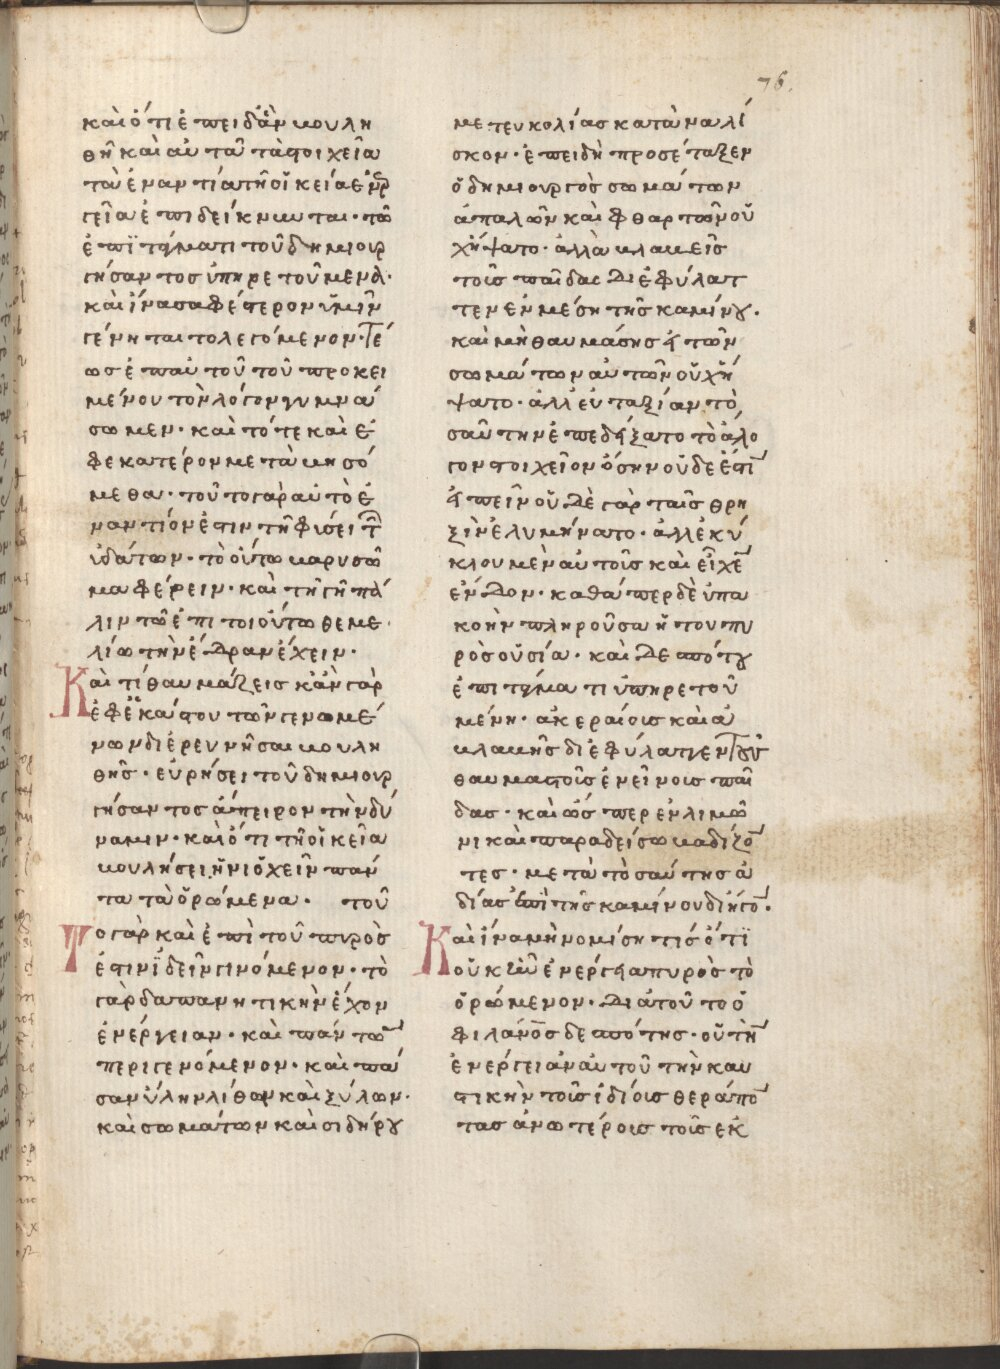 76.
καὶ ὅτι ἐπειδὰν βουλη
θῆ καὶ αὐτὰ τὰ στοιχεῖα
τὰ ἐναντία τῆ οἰκεία ἐνερ
γεία ἐπιδείκνυται· τῶ
ἐπιτάγματι τοῦ δημιουρ
γήσαντος ὑπηρετούμενα·
καὶ ἵνα σαφέστερον ὑμῖν
γένηται τὸ λεγόμενον· τέ
ως ἐπ' αὐτοῦ τοῦ προκει
μένου τὸν λόγον γυμνά
σωμεν· καὶ τότε καὶ ἐ
φ' ἑκατέρον μεταβησό
μεθα· τοῦτο γὰρ αὐτὸ ἐ
ναντίον ἐστιν τῆ φύσει τῶν
ὑδάτων· τὸ οὕτω βαρὺ σῶ
μα φέρειν· καὶ τῆ γῆ πά
λιν τῶ ἐπὶ τοιούτω θεμε
λίω τὴν ἕδραν ἔχειν·
Καὶ τί θαυμάζεις κἂν γὰρ
ἐφ' ἕκαστον τῶν γενομέ
νων διερευνῆσαι βουλη
θῆς· εὑρήσει τοῦ δημιουρ
γήσαντος ἄπειρον τὴν δύ
ναμιν· καὶ ὅτι τῆ οἰκεία
βουλήσει ἡνιοχεῖν πάν
τα τὰ ὁρώμενα· τοῦ
Το γὰρ καὶ ἐπὶ τοῦ πυρὸς
ἔστιν ἰδεῖν γινόμενον· τὸ
γὰρ δαπανητικὴν ἔχον
ἐνέργειαν· καὶ πάντων
περιγενόμενον· καὶ πᾶ
σαν ὕλην λίθων καὶ ξύλων·
καὶ σωμάτων καὶ σιδήρου
μετ' εὐκολίας καταναλί
σκον· ἐπειδὴ προσέταξεν
ὁ δημιουργὸς σωμάτων
ἁπαλῶν καὶ φθαρτῶν οὐ
χ' ἥψατο· ἀλλὰ βλαβεῖς
τοὺς παῖδας διεφύλατ
τεν ἐν μέση τῆς καμίνου·
καὶ μὴ θαυμάσης εἰ τῶν
σωμάτων αὐτῶν οὐχ' ἥ
ψατο· ἀλλ' εὐταξίαν το
σαύτην ἐπεδείξατο τὸ ἄλο
γον στοιχεῖον ὅσην οὐδὲ ἔστιν
εἰπεῖν οὐδὲ γὰρ ταῖς θρι
ξὶν ἐλυμήνατο· ἀλλ' ἐκύ
κλου μὲν αὐτοὺς καὶ εἶχεν
ἔνδον· καθάπερ δὲ ὑπα
κοὴν πληροῦσα ἡ τοῦ πυ
ρὸς οὐσία· καὶ δεσπότου
ἐπιτάγματι ὑπηρετου
μένη· ἀκεραίους καὶ ἀ
βλαβῆς διεφύλαττεν τοὺς
θαυμαστοὺς ἐκείνους παῖ
δας· καὶ ὥσπερ ἐν λιμῶ
νι καὶ παραδείσω βαδίζον
τες· μετὰ τοσαύτης ἀ
δίας ἐπὶ τῆς καμίνου διῆγον·
Καὶ ἵνα μὴ νομίση τις ὅτι
οὐκ ἦν ἐνέργεια πυρὸς τὸ
ὁρώμενον· διὰ τοῦτο ὁ
φιλάνος δεσπότης· οὔτε τὴν
ἐνέργειαν αὐτοῦ τὴν καυ
στικὴν τοὺς ἰδίους θεράπον
τας ἀνωτέρους τοῖς ἐκ